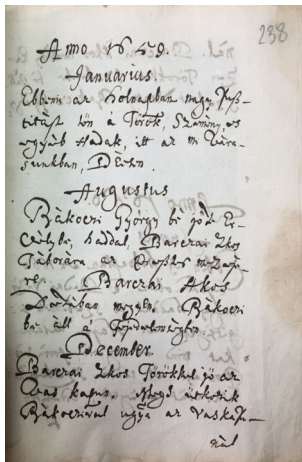 238
Anno 1659.
Januarius.
Ebben az holnapban nagy Pusz-
titást tön à Török, Szamny, es
egyéb Hadak, itt az mi Vára-
sunkban, Désen.
Augustus
Rákoczi György bé jött Er-
délybe, haddal, Barczai Akos
Táborára az
re. Barczai Akos
megyen. Rákoczi
bé áll à Fejedelemségben.
December.
Barczai Akos Törökkel jő az
Vas kapun. Megs
Rákoczival ugyá az Vaskapu-
rúl